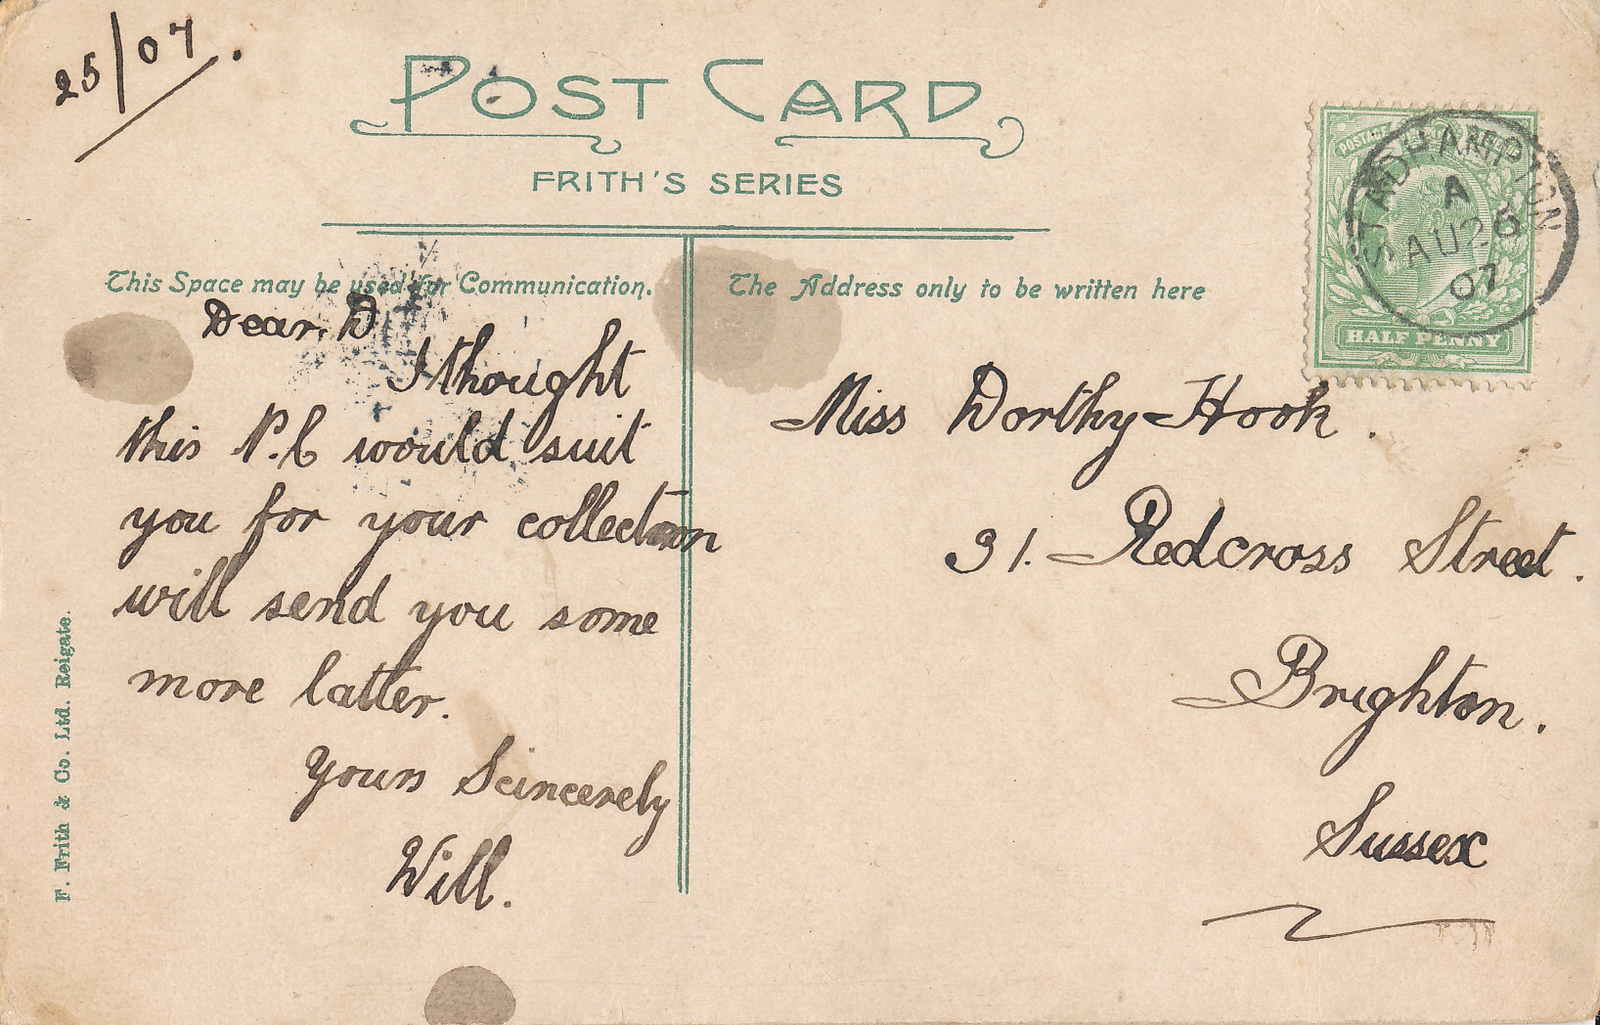 25/07.
POST CARD
FRITH'S SERIES
This Space may be used for Communication.
The Address only to be written here
POSTAGE
STADHAMPTON
A
AU 26
07
HALF PENNY
Dear. D
I thought
this P.C would suit
you for your collection
will send you some
more latter.
Yours Scincerely
Will.
Miss Dorthy Hook.
31. Redcross Street.
Brighton.
Sussex
F. Frith & Co. Ltd. Reigate.